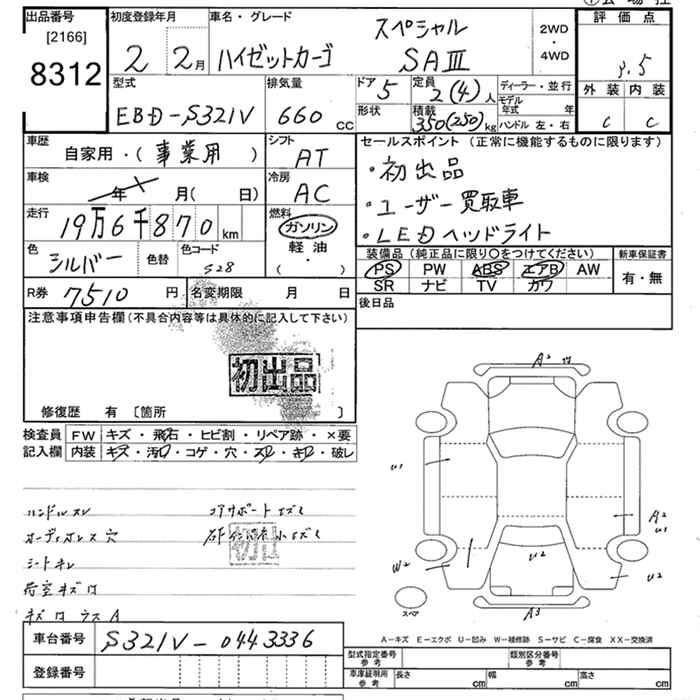 出品番号
[2166]
8312
初度登録年月
2 2月
車名・グレード
ハイゼットカーゴ
スペシャル
SAⅢ
2WD
・
4WD
評価点
3.5
外装 内装
C C
型式
EBD-S321V
排気量
660 CC
ドア 5
形状
定員 2(4)人
積載 350(250)kg
ディーラー・並行
モデル年式 年
ハンドル 左・右
車歴
自家用・(事業用)
シフト
AT
車検
年 月( 日)
冷房
AC
走行
19万6千870km
燃料
ガソリン
軽油
( ・ )
色
シルバー
色替
色コード
S28
R券 7510円
名変期限 月 日
セールスポイント(正常に機能するものに限ります)
・初出品
・ユーザー買取車
・LEDヘッドライト
装備品(純正品に限り○をつけてください)
PS PW ABS エアB AW
SR ナビ TV カワ
新車保証書
有・無
後日品
注意事項申告欄(不具合内容等は具体的に記入して下さい)
初出品
修復歴 有 〔箇所 〕
検査員記入欄
FW キズ・飛石・ヒビ割・リペア跡・×要
内装 キズ・汚れ・コゲ・穴・スレ・キレ・破レ
ハンドルスレ
オーディオレス 穴
シートキレ
荷室キズ
コアサポート
初出
A2
U1
A2
U1
W2
U2
U2
A3
スペア
A-キズ E-エクボ U-凹み W-補修跡 S-サビ C-腐食 XX-交換済
車台番号 S321V-0443336
登録番号
型式指定番号
参考
類別区分番号
参考
車庫証明用
参考
長さ cm
幅 cm
高さ cm